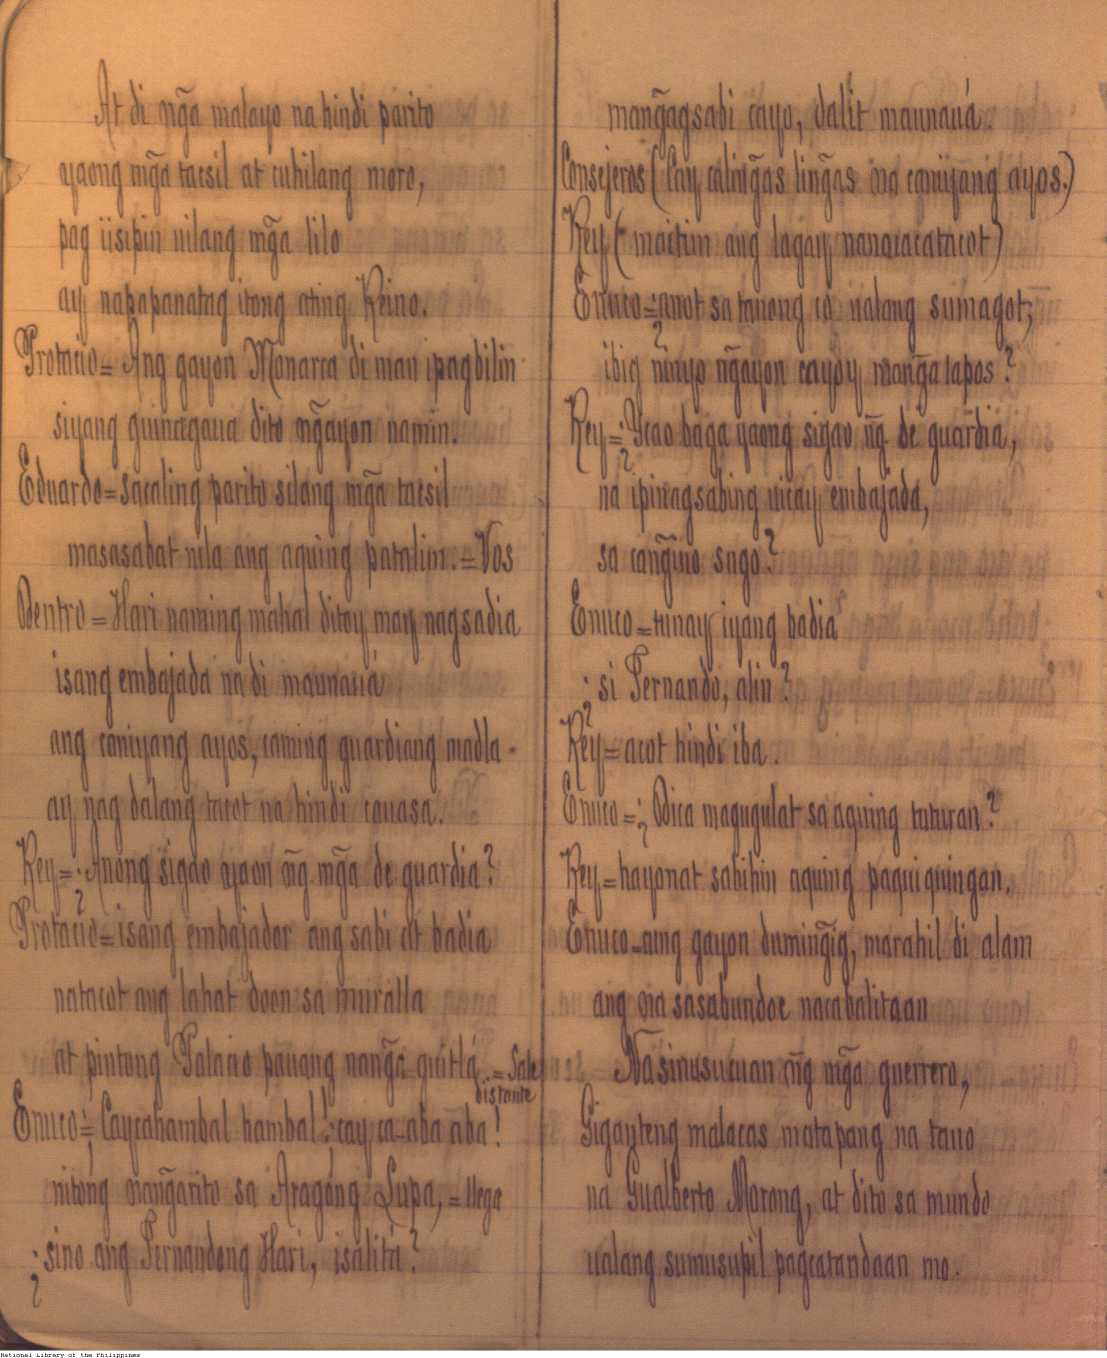 At di mg̃a malayo na hindi parito
yaong mg̃a taesil at cuhilang moro,
pag iisipin nilang mg̃a lilo
ay napapanatag itong ating Reino.
Protacio= Ang gayon Monarca di man ipagbilin
siyang guinagaua dito ng̃ayon namin.
Eduardo= Sacaling parito silang mg̃a taesil
masasabat nila ang aquing patalim.=Vos
Dentro = Hari naming mahal ditoy may nagsadia
isang embajada na di maunauá
ang caniyang ayos, caming guardiang madla -
ay nag dalang tacot na hindi cauasa.
Rey=¿Anong sigao ajaon ng̃ mg̃a de guardia?
Protacio=isang embajador ang sabi at badia
natacot ang lahat doon sa muralla
at pintong Palacio pauang nang̃a guitlá.= Sale
distante
Enuco=¡Caycahambal hambal!¡cay ca-aba aba!
nitong nang̃arito sa Aragong Lupa,=llega
¿sino ang Fernandong Hari, isalita?
mang̃agsabi cayo, dalit maunauá.
Consejeros (Cay caling̃as ling̃as na caniyang ayos.)
Rey (maitim ang lagay nanacacatacot)
Enuco=¿anot sa tanong co ualang sumagot;
ibig ninyo ng̃ayon cayoy mang̃atapos?
Rey=¿Ycao baga yaong sigao ng̃ de guardia,
na ipinagsabing icay embajada,
sa cang̃ino sugo?
Enuco=tunay iyang badia
¿si Fernando, alin?
Rey=acot hindi iba.
Enuco=¿Dica magugulat sa aquing tuturan?
Rey=hayonat sabihin aquing paquiquingan.
Enuco=aung gayon duming̃ig, marahil di alam
ang na sasabundoc nacabalitaan
Nasinusucuan ng̃ mg̃a guerrero,
Gigayteng malacas matapang na tauo
na Gualberto Morong, at dito sa mundo
ualang sumusupil pagcatandaan mo.
National Library of the Philippines